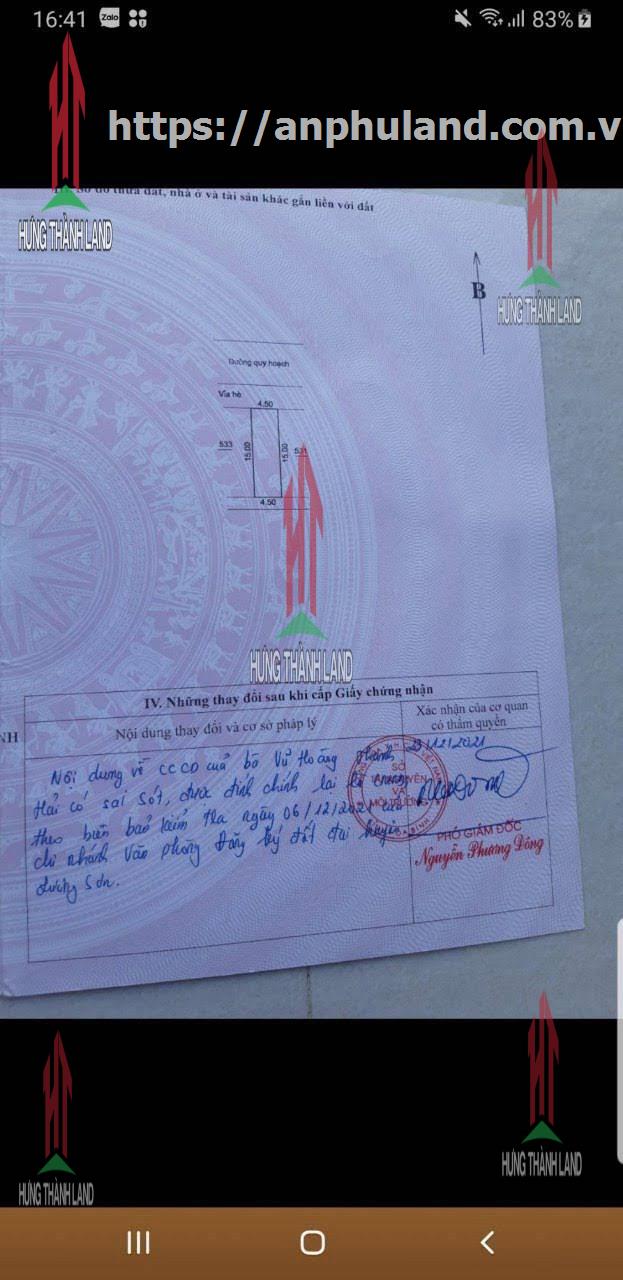 16:41 Zalo 83%
https://anphuland.com.v
HƯNG THÀNH LAND
HƯNG THÀNH LAND
III. Sơ đồ thửa đất, nhà ở và tài sản khác gắn liền với đất
B
Đường quy hoạch
Vỉa hè
4.50
533
15.00
15.00
531
4.50
HƯNG THÀNH LAND
IV. Những thay đổi sau khi cấp Giấy chứng nhận
NH
Nội dung thay đổi và cơ sở pháp lý
Xác nhận của cơ quan
có thẩm quyền
Nội dung về CCCD của bà Vũ Hoàng Thanh
Hải có sai sót, được đính chính lại là
theo biên bản kiểm tra ngày 06/12/2021 của
chi nhánh Văn phòng Đăng ký đất đai huyện
Lương Sơn.
23/12/2021
SỞ
TÀI NGUYÊN
VÀ
MÔI TRƯỜNG
PHÓ GIÁM ĐỐC
Nguyễn Phương Đông
HƯNG THÀNH LAND
HƯNG THÀNH LAND